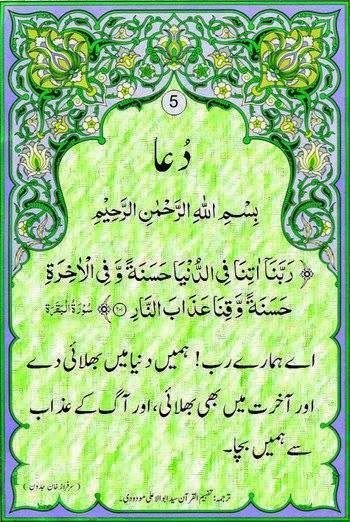 5
دُعا
بِسْمِ اللّٰهِ الرَّحْمٰنِ الرَّحِیْمِ
﴿ رَبَّنَاۤ اٰتِنَا فِی الدُّنْیَا حَسَنَةً وَّ فِی الْاٰخِرَةِ
حَسَنَةً وَّ قِنَا عَذَابَ النَّارِ ﴾ سُوْرَةُ الْبَقَرَة
اے ہمارے رب! ہمیں دنیا میں بھلائی دے
اور آخرت میں بھی بھلائی، اور آگ کے عذاب
سے ہمیں بچا۔
(سرفراز خان جدون)
ترجمہ: تفہیم القرآن سید ابوالاعلیٰ مودودی۔